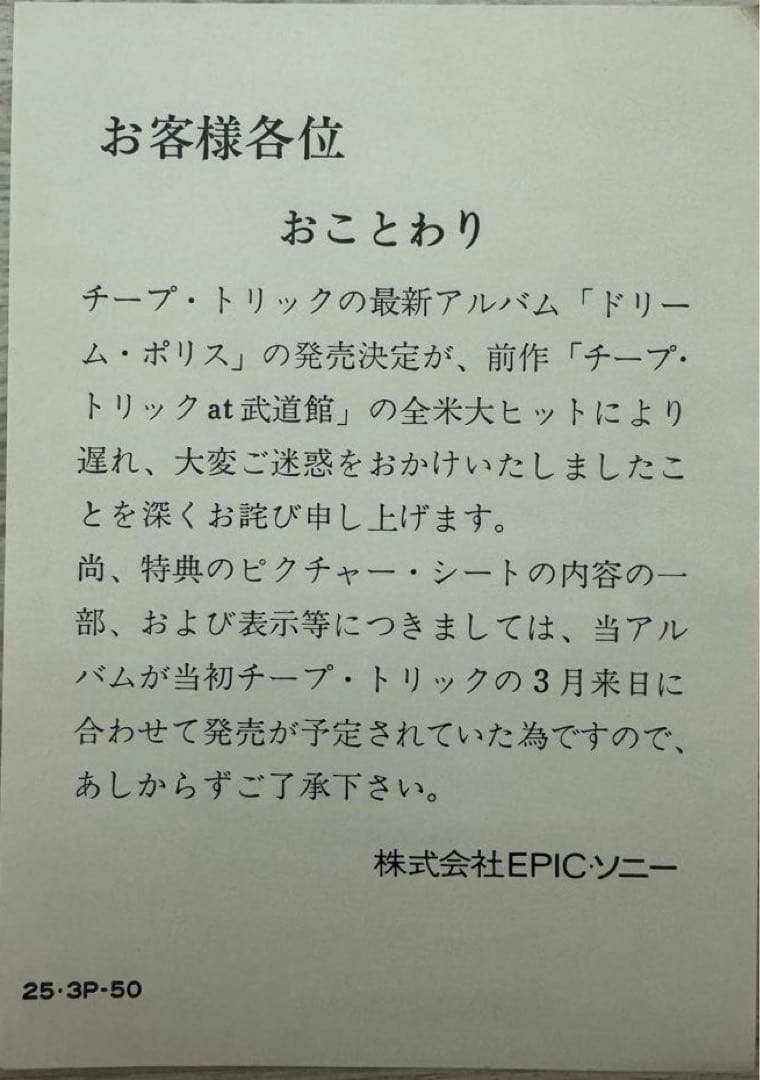 お客様各位
おことわり
チープ・トリックの最新アルバム「ドリー
ム・ポリス」の発売決定が、前作「チープ・
トリックat武道館」の全米大ヒットにより
遅れ、大変ご迷惑をおかけいたしましたこ
とを深くお詫び申し上げます。
尚、特典のピクチャー・シートの内容の一
部、および表示等につきましては、当アル
バムが当初チープ・トリックの3月来日に
合わせて発売が予定されていた為ですので、
あしからずご了承下さい。
株式会社EPIC・ソニー
25・3P-50